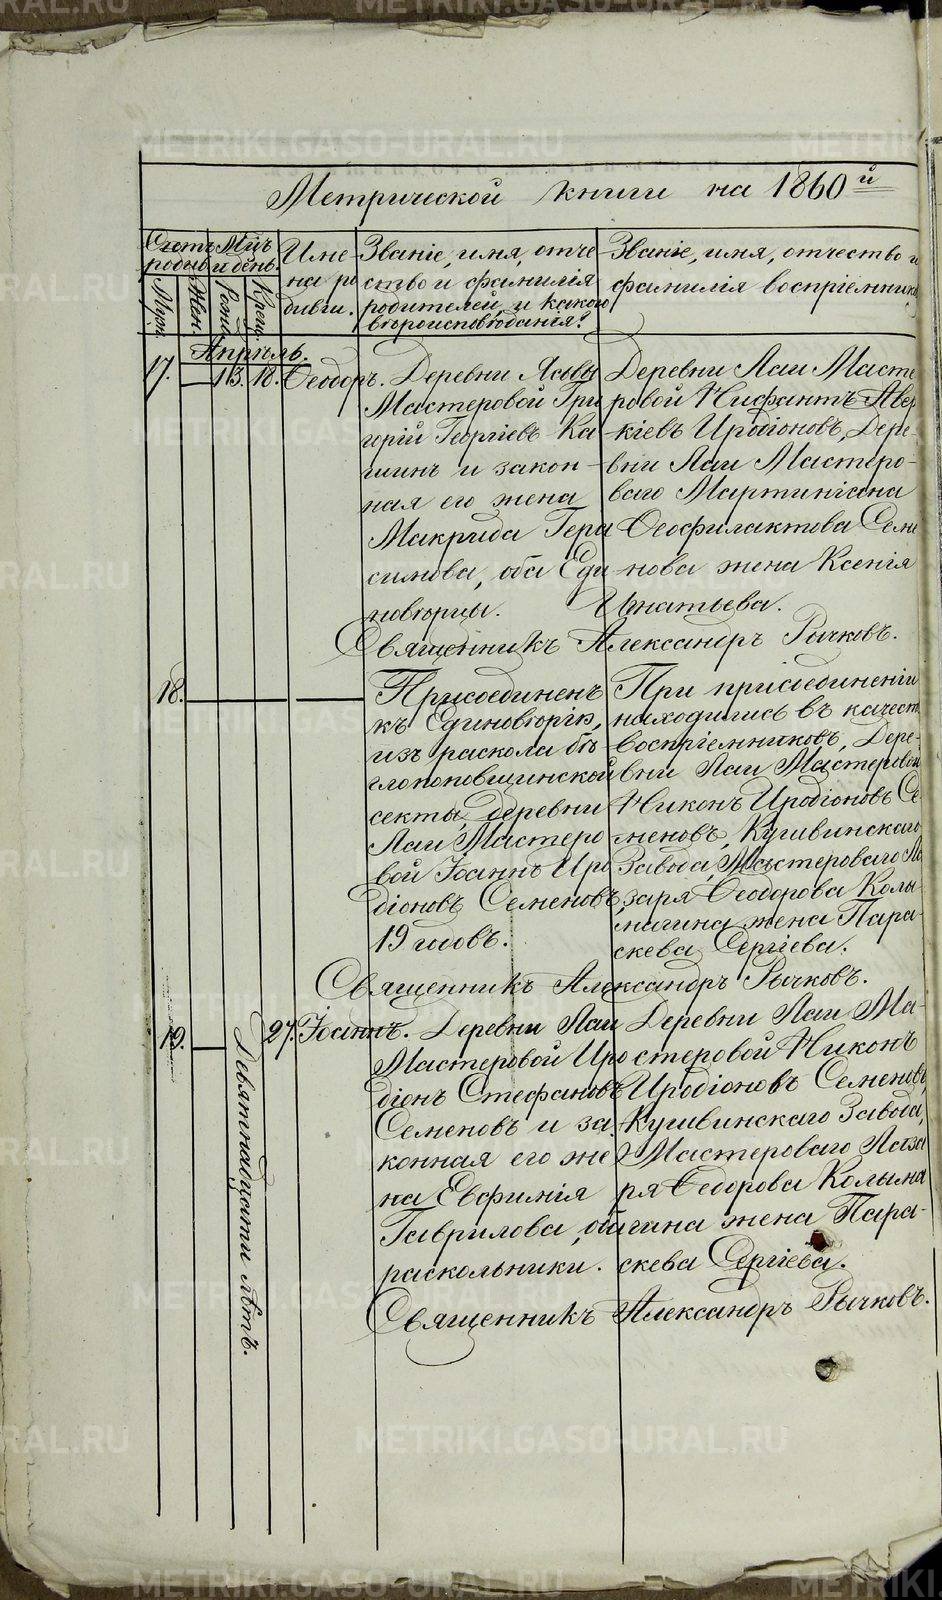 Метрической книги на 1860й
Счетъ родив
Муж.
Жен.
М-цъ и день.
Рожд.
Крещ.
Име-
на ро
дивш.
Званіе, имя, отче
ство и фамилія
родителей, и какого
вѣроисповѣданія?
Званіе, имя, отчество и
фамилія воспріемник
Апрѣль.
17. 13. 18. Ѳеодоръ.
Деревни
Мастеровой Гри
горій Георгіевъ Ка
шинъ и закон-
ная его жена
Макрида Гера
симова, оба Еди
новѣрцы.
Деревни Лаи Масте
ровой Нифантъ Авер
кіевъ Иродіоновъ, Дере-
вни Лаи Мастеро-
ваго Мартиніана
Ѳеофилактова Семе
нова жена Ксенія
Игнатьева.
Священникъ Александръ Рычковъ.
18.
Присоединенъ
къ Единовѣрію,
изъ раскола бѣ
глопоповщинской
секты, деревни
Лаи Мастеро
вой Іоаннъ Иро
діоновъ Семеновъ,
19 годовъ.
При присоединеніи
находились въ качест
воспріемниковъ, Дере-
вни Лаи Мастеровой
Никонъ Иродіоновъ Се
меновъ, Кушвинскаго
Завода, Мастероваго Ла
заря Ѳеодорова Колы-
магина жена Пара-
скева Сергіева.
Священникъ Александръ Рычковъ.
19. Девятнадцати лѣтъ. 27. Іоаннъ.
Деревни Лаи
Мастеровой Иро
діонъ Стефановъ
Семеновъ и за
конная его же
на Евфимія
Гаврилова, оба
раскольники.
Деревни Лаи Ма-
стеровой Никонъ
Иродіоновъ Семеновъ,
Кушвинскаго Завода,
Мастероваго Лаза
ря Ѳеодорова Колыма
гина жена Пара-
скева Сергіева.
Священникъ Александръ Рычковъ.
METRIKI.GASO-URAL.RU